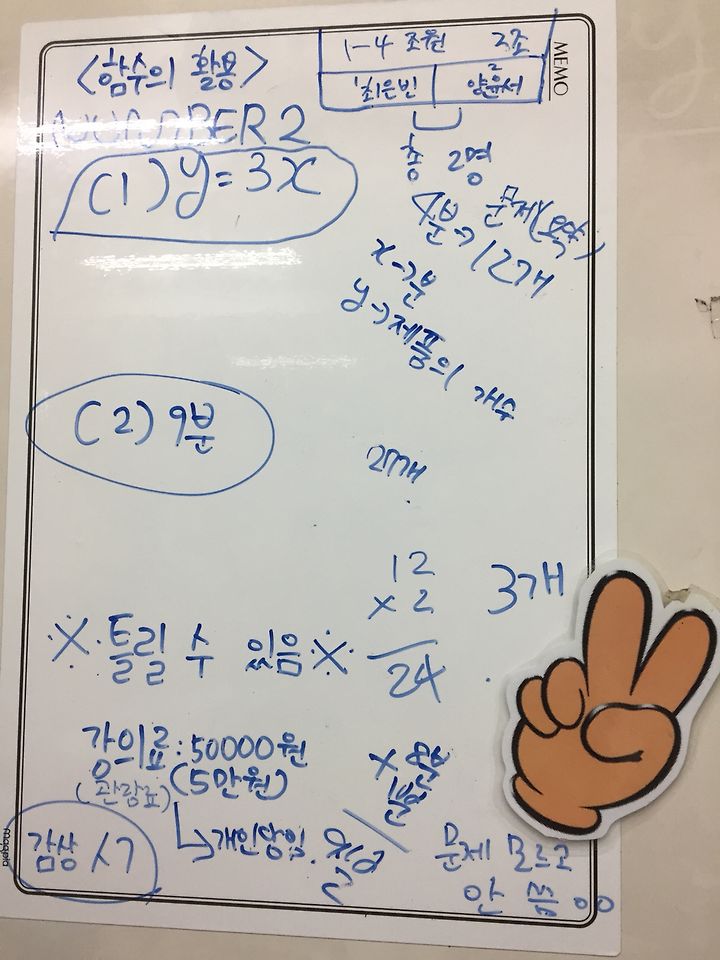 <함수의 활용>
1-4 조원 2조
최은빈 양윤서
MEMO
NUMBER 2
총 2명
(1) y=3x
문제(요약)
4분→12개
x→분
y→제품의 개수
(2) 9분
27개
12
×2
24
3개
※틀릴 수 있음※
강의료:50000원
(관람료) (5만원)
↳개인당임.
감상 시
문제 모르고
안 씀